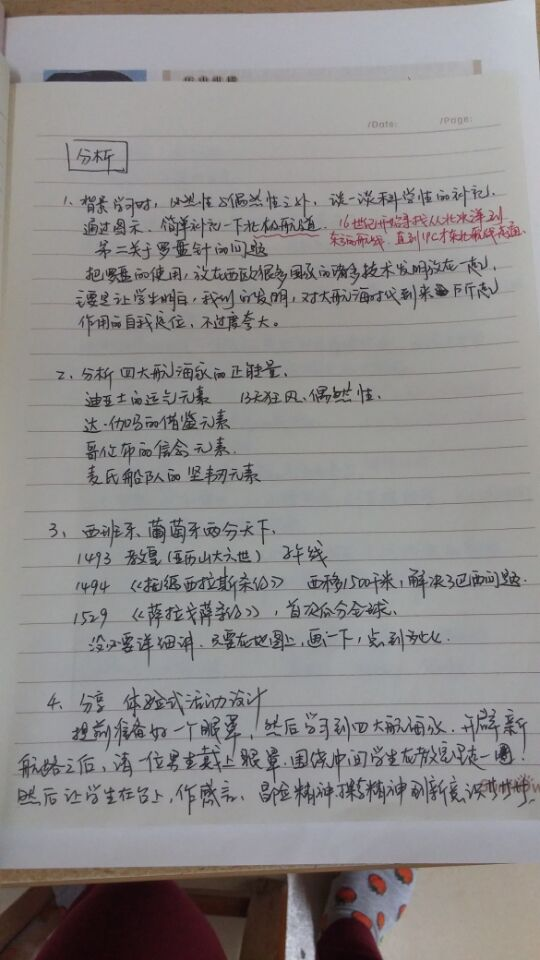 /Date: /Page:
分析
1、背景学习时，必然性与偶然性之外，谈一谈科学性的补记，
通过图示，简单补记一下北极航道。16世纪开始寻找从北冰洋到
东方的航线，直到19C才东北航线贯通。
第二关于罗盘针的问题
把罗盘的使用，放在西欧很多国家的诸多技术发明放在一起，
主要是让学生明白，我们的发明，对大航海时代到来所起
作用的自我定位，不过度夸大。
2、分析四大航海家的正能量、
迪亚士的运气元素 13天狂风、偶然性、
达·伽马的借鉴元素
哥伦布的信念元素
麦氏船队的坚韧元素
3、西班牙、葡萄牙两分天下、
1493 教皇（亚历山大六世） 子午线
1494 《托德西拉斯条约》 西移1500千米，解决了巴西问题.
1529 《萨拉戈萨条约》，首次瓜分全球、
没必要详细讲，只要在地图上，画一下，点到为止.
4、分享 体验式活动设计
提前准备好一个眼罩，然后学习到四大航海家，开辟新
航路之后，请一位男生戴上眼罩，围绕中间学生在教室里走一圈.
然后让学生在台上，作感言、冒险精神、探索精神到新意识